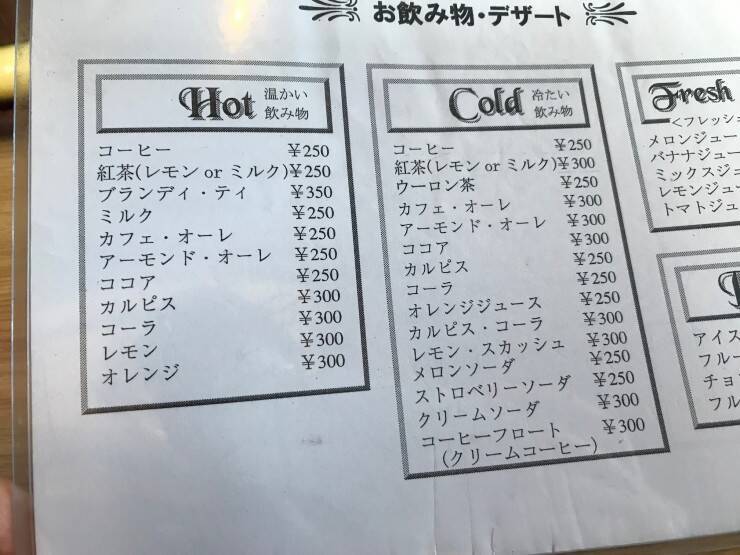 お飲み物・デザート
Hot 温かい
飲み物
コーヒー ¥250
紅茶(レモン or ミルク)¥250
ブランディ・ティ ¥350
ミルク ¥250
カフェ・オーレ ¥250
アーモンド・オーレ ¥250
ココア ¥250
カルピス ¥300
コーラ ¥300
レモン ¥300
オレンジ ¥300
Cold 冷たい
飲み物
コーヒー ¥250
紅茶(レモン or ミルク)¥300
ウーロン茶 ¥250
カフェ・オーレ ¥300
アーモンド・オーレ ¥300
ココア ¥300
カルピス ¥250
コーラ ¥250
オレンジジュース ¥250
カルピス・コーラ ¥300
レモン・スカッシュ ¥300
メロンソーダ ¥250
ストロベリーソーダ ¥250
クリームソーダ ¥300
コーヒーフロート ¥300
(クリームコーヒー)
Fresh
<フレッシ
メロンジュー
バナナジュー
ミックスジュ
レモンジュ
トマトジュ
アイス
フルー
チョ
フル